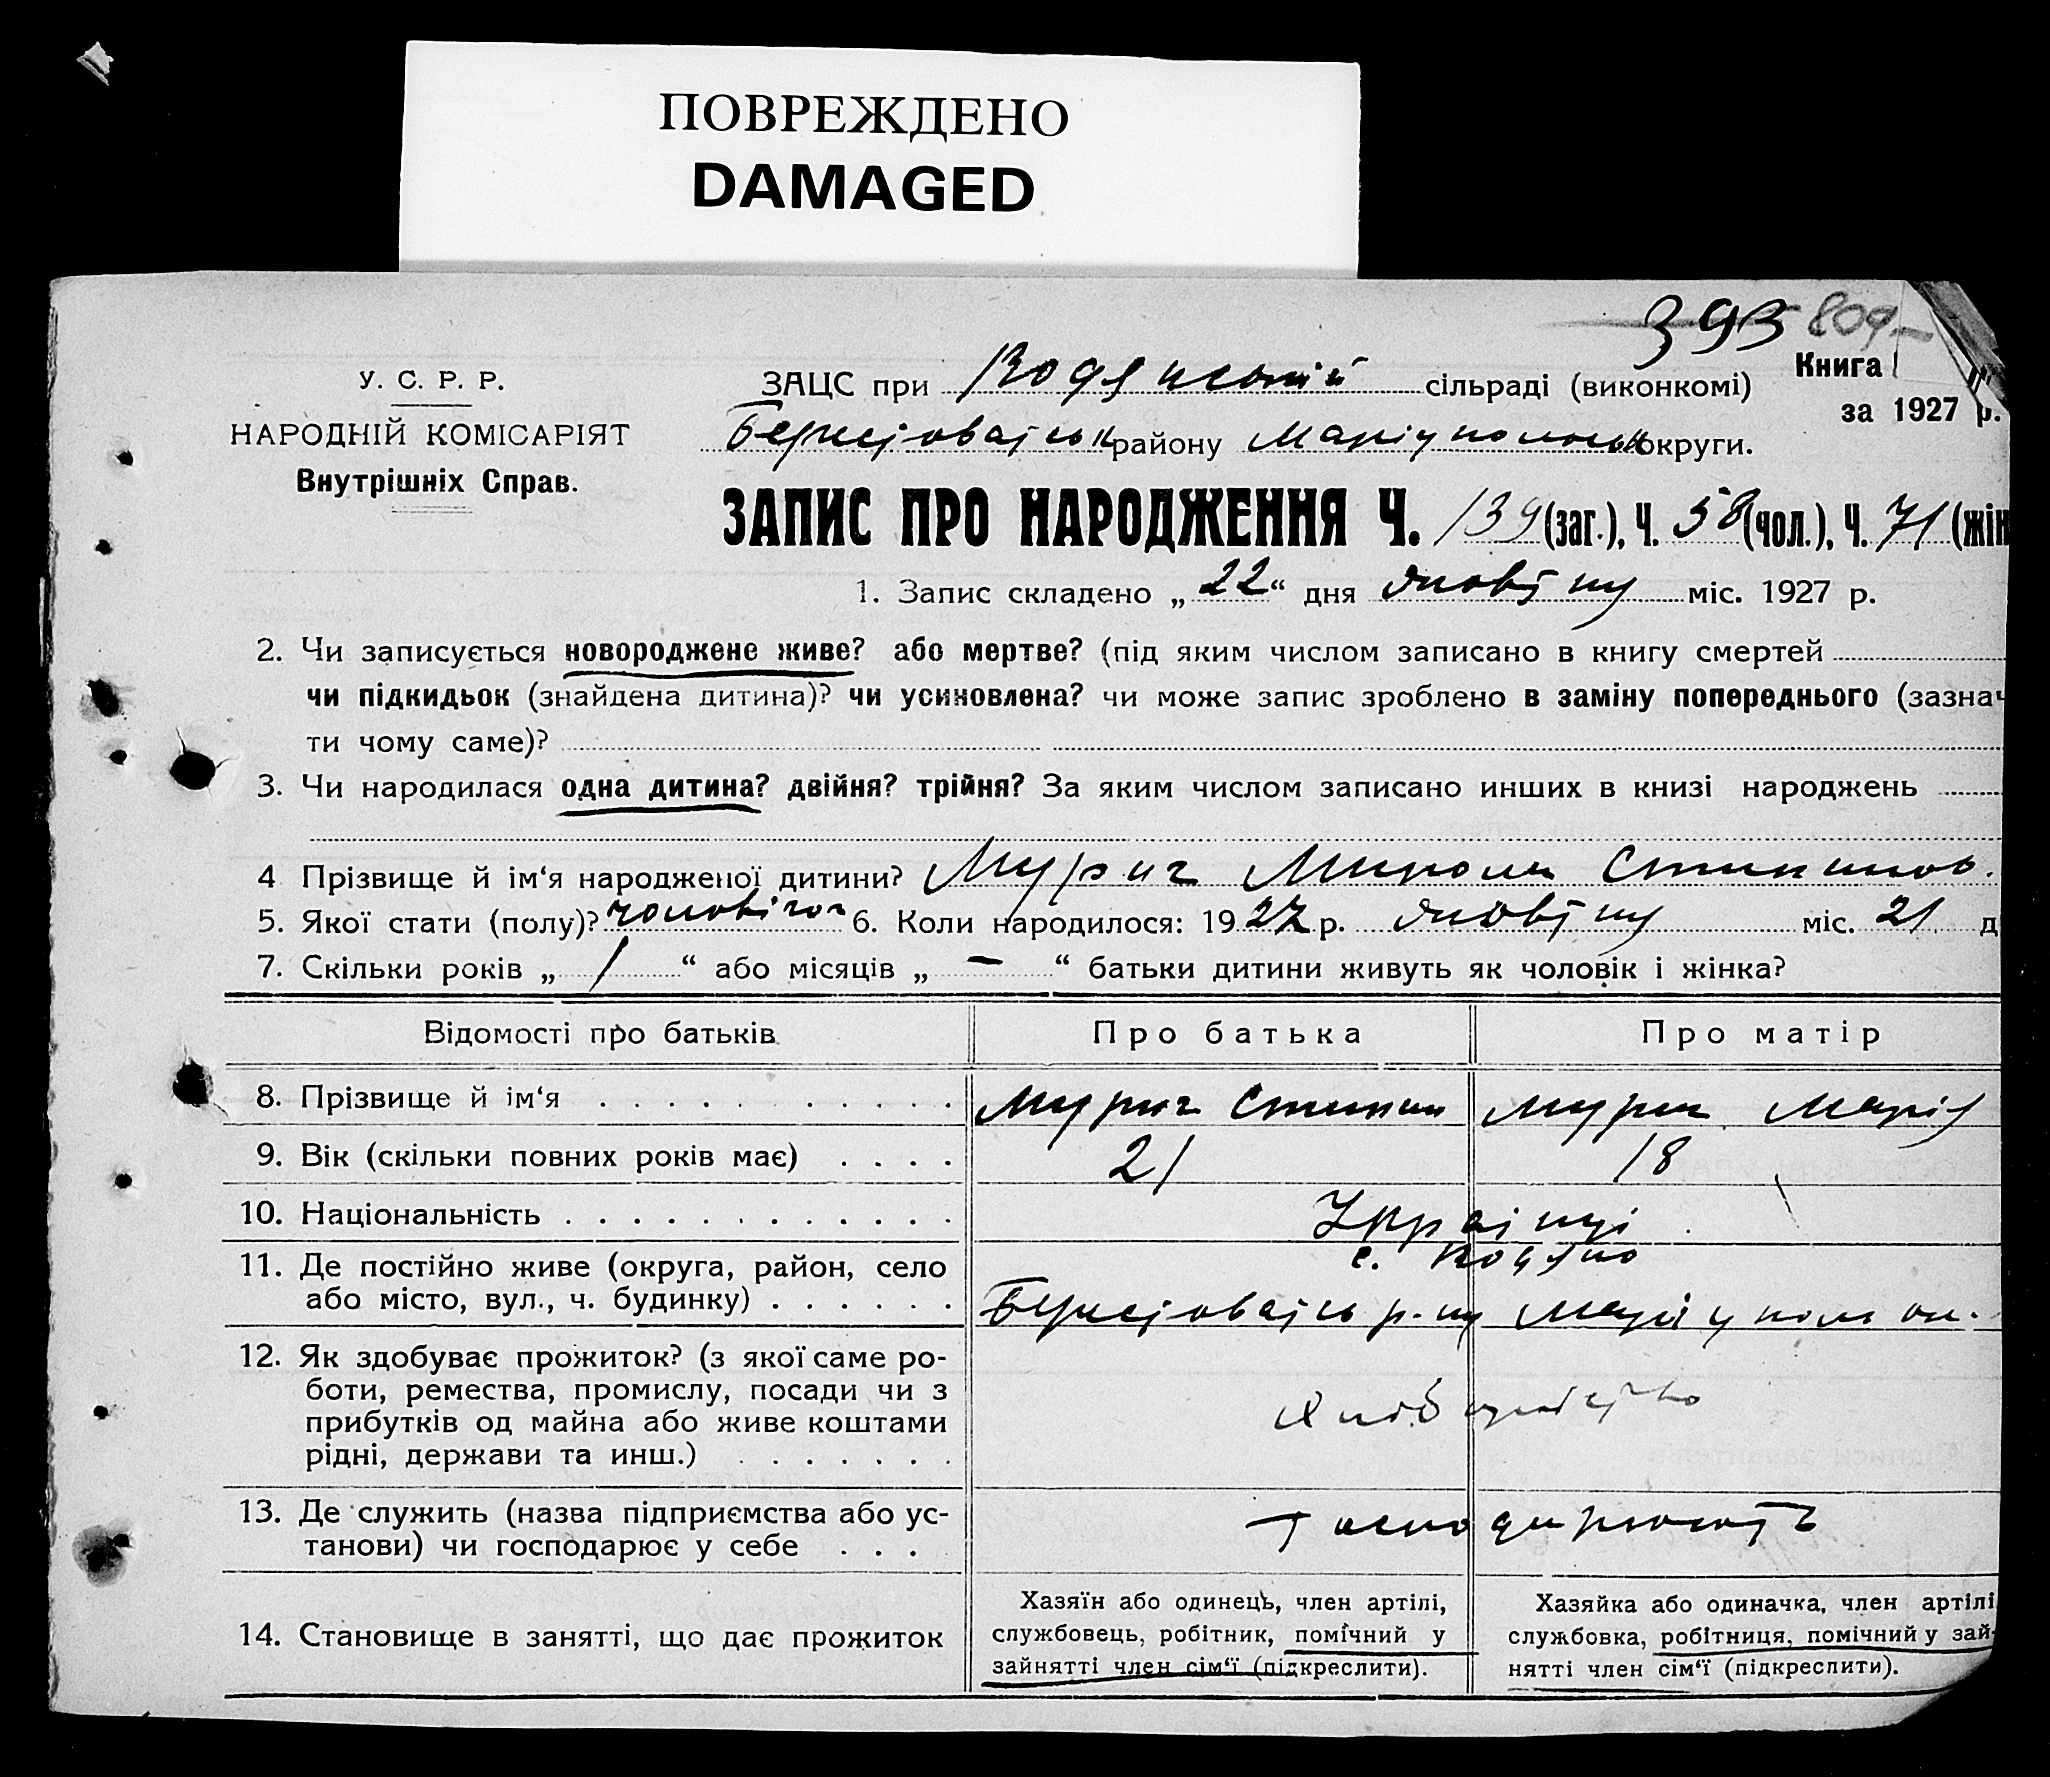 ПОВРЕЖДЕНО
DAMAGED
393 809
Книга
за 1927 р.
У. С. Р. Р.
НАРОДНІЙ КОМІСАРІЯТ
Внутрішніх Справ.
ЗАЦС при Водянській сільраді (виконкомі)
району Маріупольськ округи.
ЗАПИС ПРО НАРОДЖЕННЯ Ч. 139 (заг.), Ч. 58 (чол.), Ч. 71 (жін
1. Запис складено „ 22 “ дня жовтня міс. 1927 р.
2. Чи записується новороджене живе? або мертве? (під яким числом записано в книгу смертей
чи підкидьок (знайдена дитина)? чи усиновлена? чи може запис зроблено в заміну попереднього (зазнач
ти чому саме)?
3. Чи народилася одна дитина? двійня? трійня? За яким числом записано инших в книзі народжень
4 Прізвище й ім‘я народженої дитини? Мурич Микола Степанов.
5. Якої стати (полу)? чоловічої 6. Коли народилося: 1927 р. жовтня міс. 21 д
7. Скільки років „ 1 “ або місяців „ — “ батьки дитини живуть як чоловік і жінка?
Відомості про батьків Про батька Про матір
8. Прізвище й ім‘я Мурич Степан Мурич Марія
9. Вік (скільки повних років має) 21 18
10. Національність Українці
11. Де постійно живе (округа, район, село с. Водяно
або місто, вул., ч. будинку) р-ну Маріупол ок.
12. Як здобуває прожиток? (з якої саме ро-
боти, ремества, промислу, посади чи з
прибутків од майна або живе коштами Хліборобство
рідні, держави та инш.)
13. Де служить (назва підприємства або ус-
танови) чи господарює у себе Господарюють
14. Становище в занятті, що дає прожиток
Хазяїн або одинець, член артілі,
службовець, робітник, помічний у
зайнятті член сім‘ї (підкреслити).
Хазяйка або одиначка, член артілі
службовка, робітниця, помічний у зай-
нятті член сім‘ї (підкреслити).